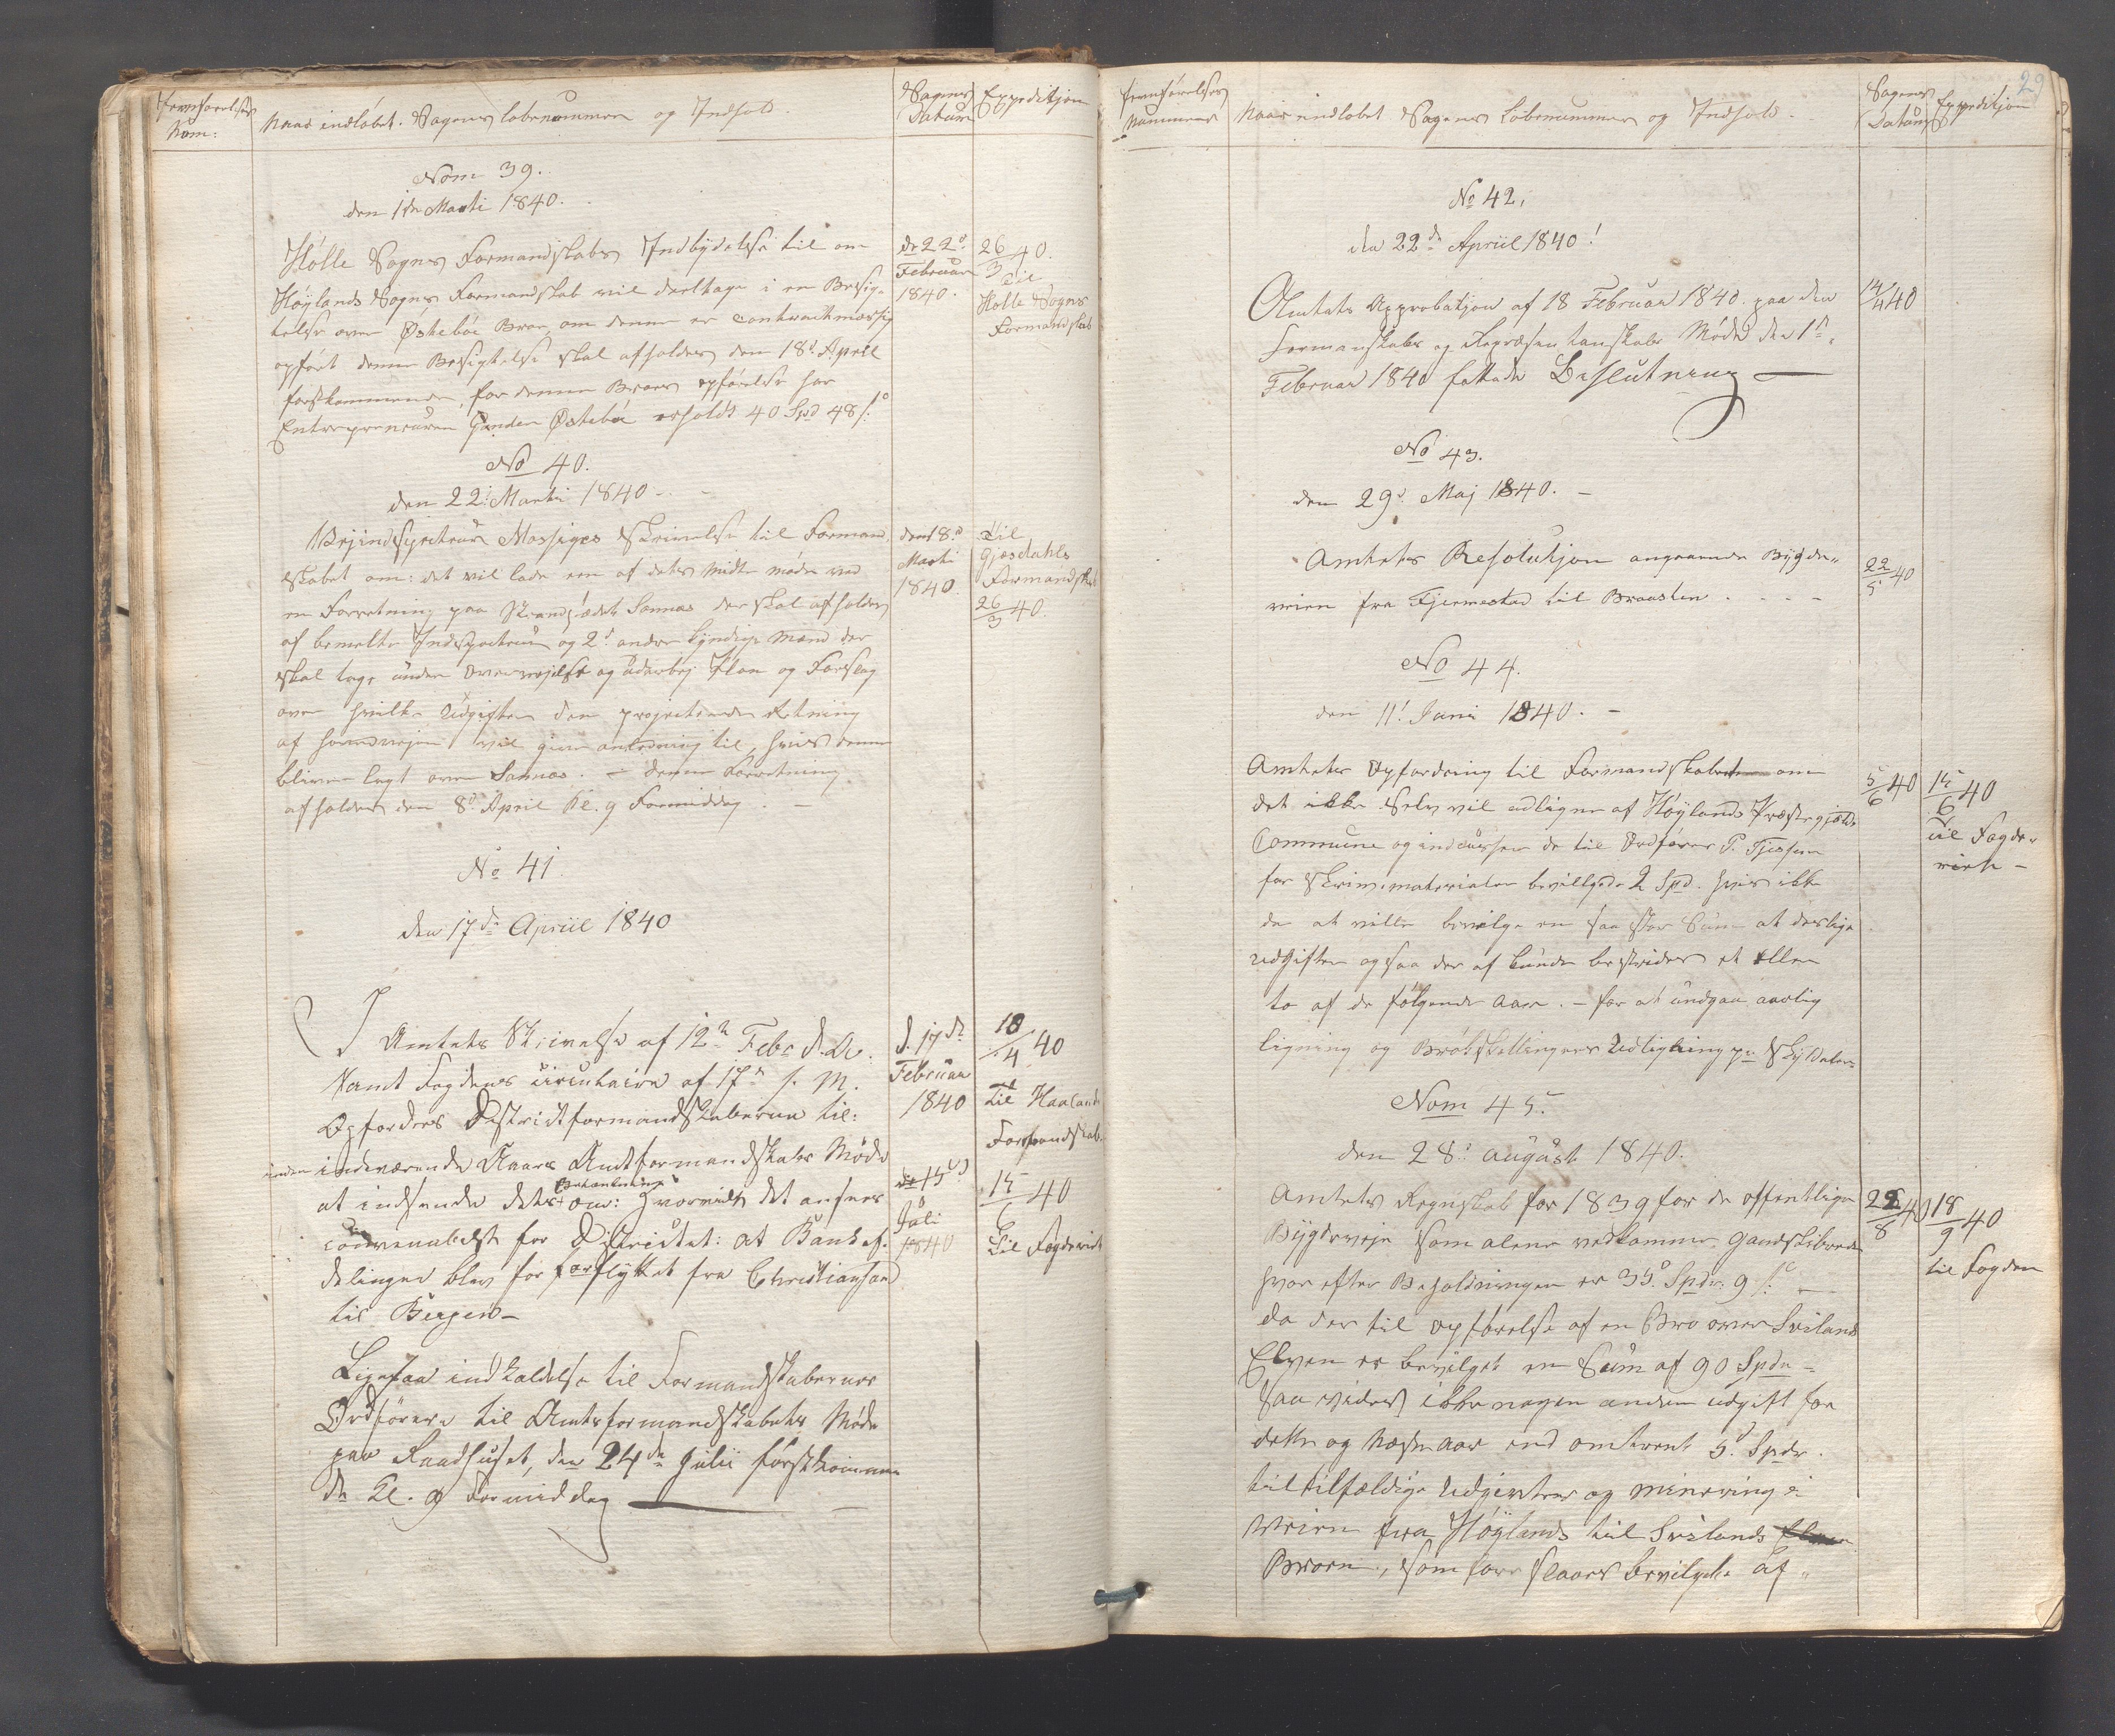 Fremførelses
Num:
Naar indløbet. Sagens løbenummer og Indhold.
Sagens
Datum
Expedition
Nom 39.
den 1ste Marti 1840.
Hølle Sogns Formandskabs Indbydelse til om
Høylands Sogns Formandskab vil deeltage i en Besig-
telse over Østebøe Broe, om denne er contractmæssig
opført denne Besigtelse skal afholdes den 18d April
førstkommende, for denne Broes opførelse har
Entrepreneuren Gunder Østebøe erholdt 40 Spd 48 s.
de 22d
Februar
1840.
26/3 40.
Til
Hølle Sogns
Formandskab
No 40.
den 22: Marti 1840 -
Veiinspecteur Mossiges Skrivelse til Formand-
skabet om: det vil lade een af dets Midte møde ved
en Forretning paa Strandstædet Sannæs der skal afholdes
af bemelte Indspecteur og 2d andre kyndige Mænd der
skal tage under Overvejelse og udarbej Plan og Forslag
over hvilke Udgifter den projecterende Retning
af hovedvejen vil give anledning til, hvis denne
bliver lagt over Sannæs. - denne Forretning
afholdes den 8d April Kl. 9 Formiddag. -
den 18d
Marti
1840
Til
Gjesdahls
Formandskab
26/3 40.
No 41.
den 17de Apriil 1840
I Amtets Skrivelse af 12te Febr d. A.
samt Fogdens Circulaire af 17de s. M.
Opfordres Districtformandskaberne til:
inden indeværende Aars Amtformandskabs Møde
at indsende dets Betænkning om: hvorvidt det ansees
convenabelst for Districtet: at Bankaf-
delingen blev for forflyttet fra Christiansand
til Bergen -
d. 17de
Februar
1840
18/4 40
Til Haalands
Formandskab.
Ligesaa indkaldelse til Formandskabernes
Ordførere til Amtsformandskabets Møde
paa Raadhuset, den 24de Julii førstkommen-
de Kl. 9 Formiddag
de 15d
Juli
1840
15/6 40
Til Fogderiet
29
Fremførelses
Nummer
Naar indløbet Sagens Løbenummer og Indhold.
Sagens
Datum
Expedition
No 42.
den 22de Apriil 1840!
Amtets Approbation af 18 Februar 1840. paa den
Formanskabs og Repræsentanskabs Møde den 1ste
Februar 1840 fattede Beslutning
14/4 40
No 43.
den 29d Maj 1840. -
Amtets Resolution angaaende Bygde-
veien fra Fjermestad til Braasten . . . -
22/5 40
No 44.
den 11! Juni 1840. -
Amtets Opfordring til Formandskabet om
det ikke Selv vil udligne af Høylands Præstegjælds
Commune og indcassere de til Ordfører P. Tjessem
for Skrivematerialer bevilgede 2 Spd. hvis ikke
da at ville bevilge en saa stor Sum at deslige
Udgifter ogsaa der af kunde bestrides et eller
to af de følgende Aar. - for at undgaa aarlig
ligning og Brøkskillingers Udligning pr Skylddaler
5/6 40
15/6 40
til Fogde-
riet -
Nom 45.
den 28d august 1840.
Amtets Regnskab for 1839 for de offentlige
Bygdeveje som alene vedkommer Gandskibrede
hvor efter Beholdningen er 35d Spdr. 9 s. -
da der til opførelse af en Bro over Sviland
Elven er bevilget en Sum af 90 Spdr -
saa vides ikke nogen anden Udgift for
dette og Næste aar end omtrent 5d Spdr.
til tilfældige Udgivter og minering i
Veien fra Høylands til Svilands
Broen, som foreslaaes bevilgede af
22/8 40
18/9 40
til Fogden